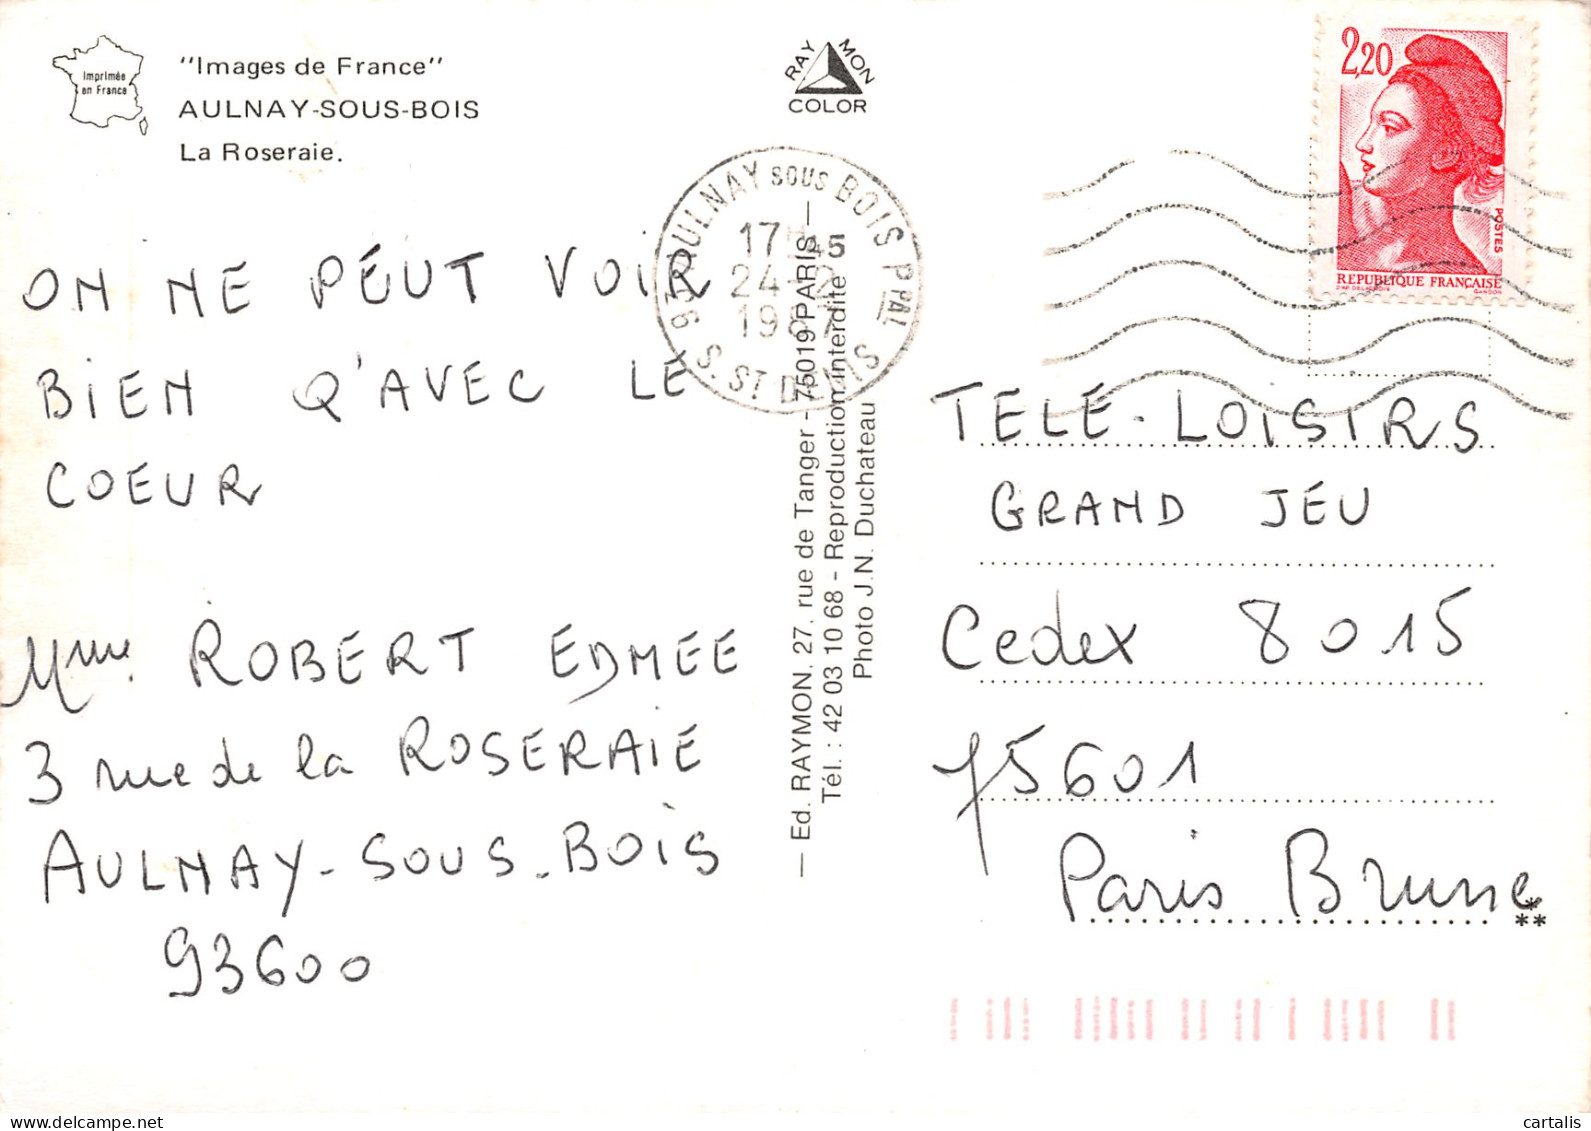 Imprimée
en France
"Images de France"
AULNAY-SOUS-BOIS
La Roseraie.
RAYMON
COLOR
2,20
POSTES
REPUBLIQUE FRANÇAISE
GANDON
93 AULNAY SOUS BOIS PPAL
17 45
24-2
1987
S. ST DENIS
ON NE PEUT VOIR
BIEN Q'AVEC LE
COEUR
Mme. ROBERT EDMEE
3 rue de la ROSERAIE
AULNAY-SOUS-BOIS
93600
— Ed. RAYMON. 27, rue de Tanger - 75019 PARIS —
Tél. : 42 03 10 68 - Reproduction interdite
Photo J.N. Duchateau
TELE-LOISIRS
GRAND JEU
Cedex 8015
75601
Paris Brune
**
cartalis